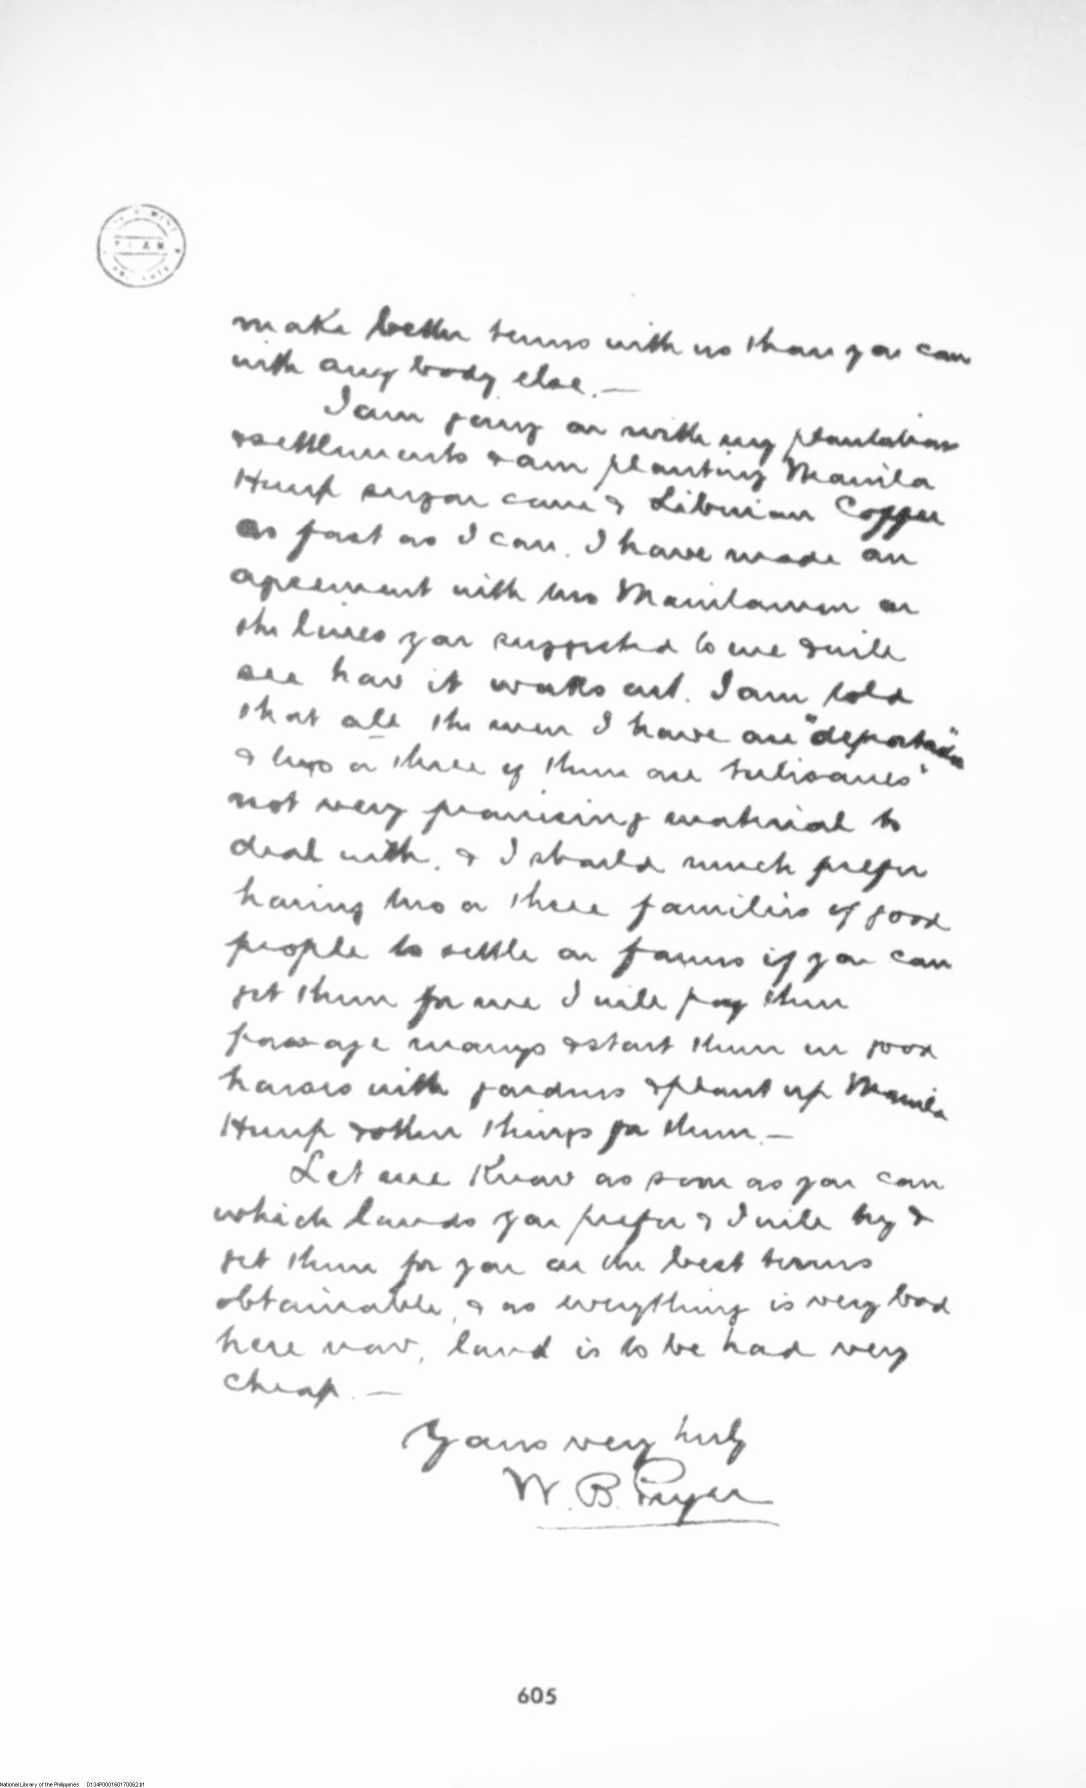 make better terms with us than you can
with any body else. —
I am going on with my plantations
& settlements & am planting Manila
Hemp sugar cane & Liberian Coffee
as fast as I can. I have made an
agreement with two Manilamen on
the lines you suggested to me & will
see how it works out. I am told
that all the men I have are "deportados"
& two or three of them are tulisanes"
not very promising material to
deal with. & I should much prefer
having two or three families of good
people to settle on farms if you can
get them for me I will pay their
passage moneys & start them in good
houses with gardens & plant up Manila
Hemp & other things for them. —
Let me know as soon as you can
which lands you prefer & I will try &
get them for you on the best terms
obtainable, & as everything is very bad
here now, land is to be had very
cheap. —
Yours very truly
W. B. Pryer
605
National Library of the Philippines